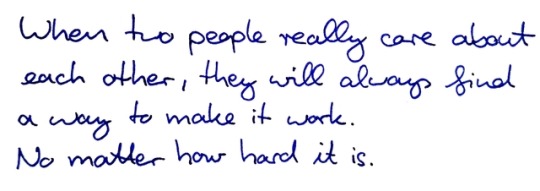 When two people really care about
each other, they will always find
a way to make it work.
No matter how hard it is.